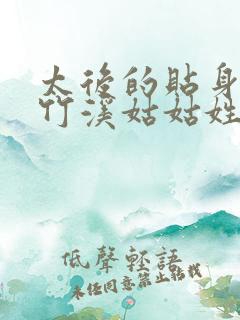 太後的貼身
竹溪姑姑姓
低聲輕語
未任同意禁止轉載